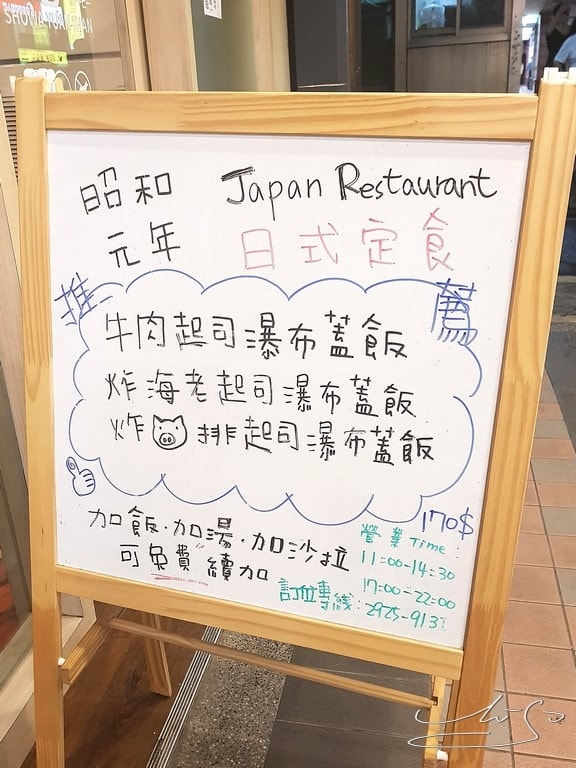 昭和 Japan Restaurant
元年 日式定食
推 薦
牛肉起司瀑布蓋飯
炸海老起司瀑布蓋飯
炸排起司瀑布蓋飯
170$
加飯·加湯·加沙拉
可免費續加
營業Time:
11:00-14:30
17:00-22:00
訂位專線:2925-913